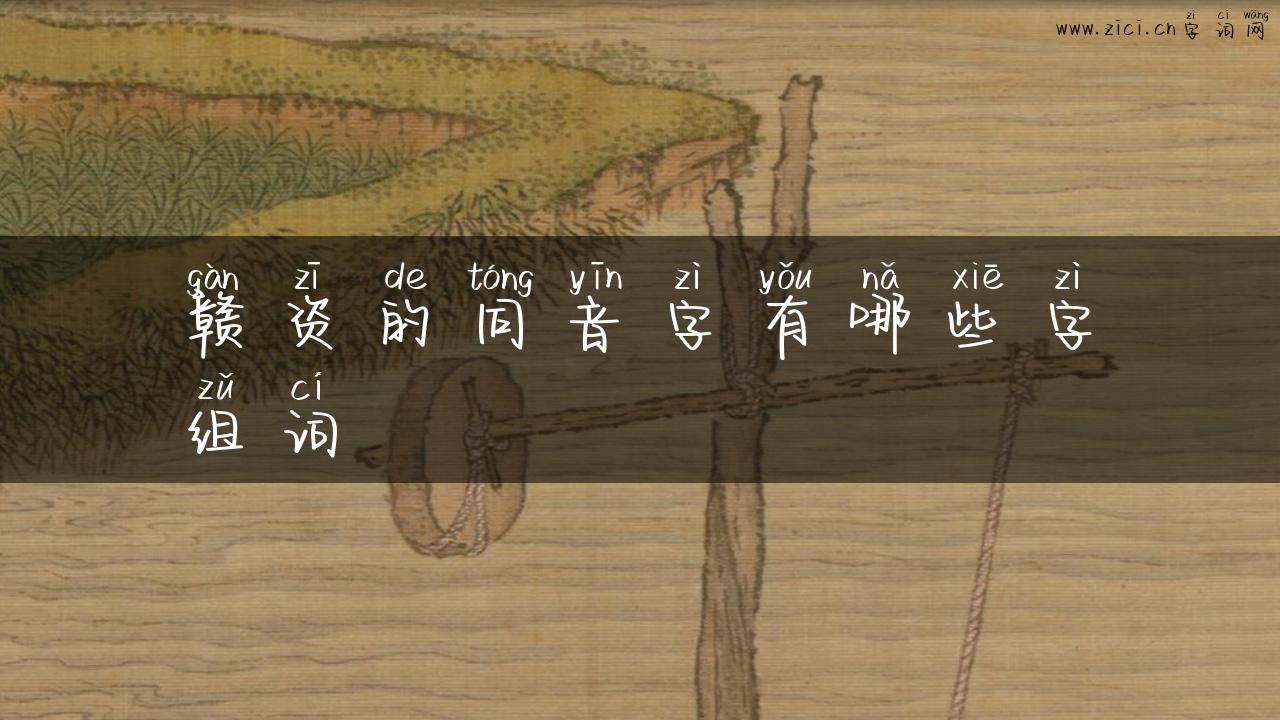 zì cí wǎng
www.zici.cn 字词网
gàn zī de tóng yīn zì yǒu nǎ xiē zì
赣资的同音字有哪些字
zǔ cí
组词